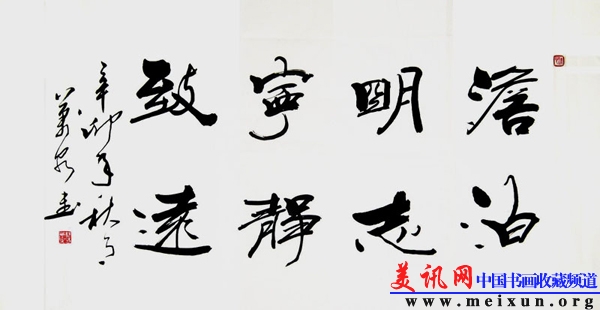 澹泊
明志
寧靜
致遠
辛卯年秋月
美讯网 中国书画收藏频道
www.meixun.org